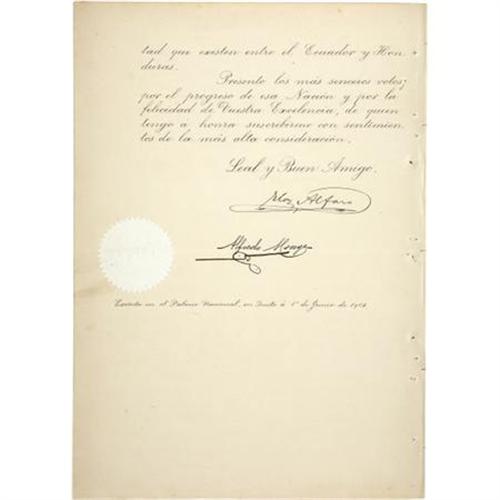 tad que existen entre el Ecuador y Hon
duras.
Presento los más sinceros votos,
por el progreso de esa Nación y por la
felicidad de Vuestra Excelencia, de quien
tengo a honra suscribirme con sentimien
tos de la más alta consideración.
Leal y Buen Amigo.
Eloy Alfaro
Alfredo Monge
en el Palacio Nacional, en Quito á 1º de Junio de